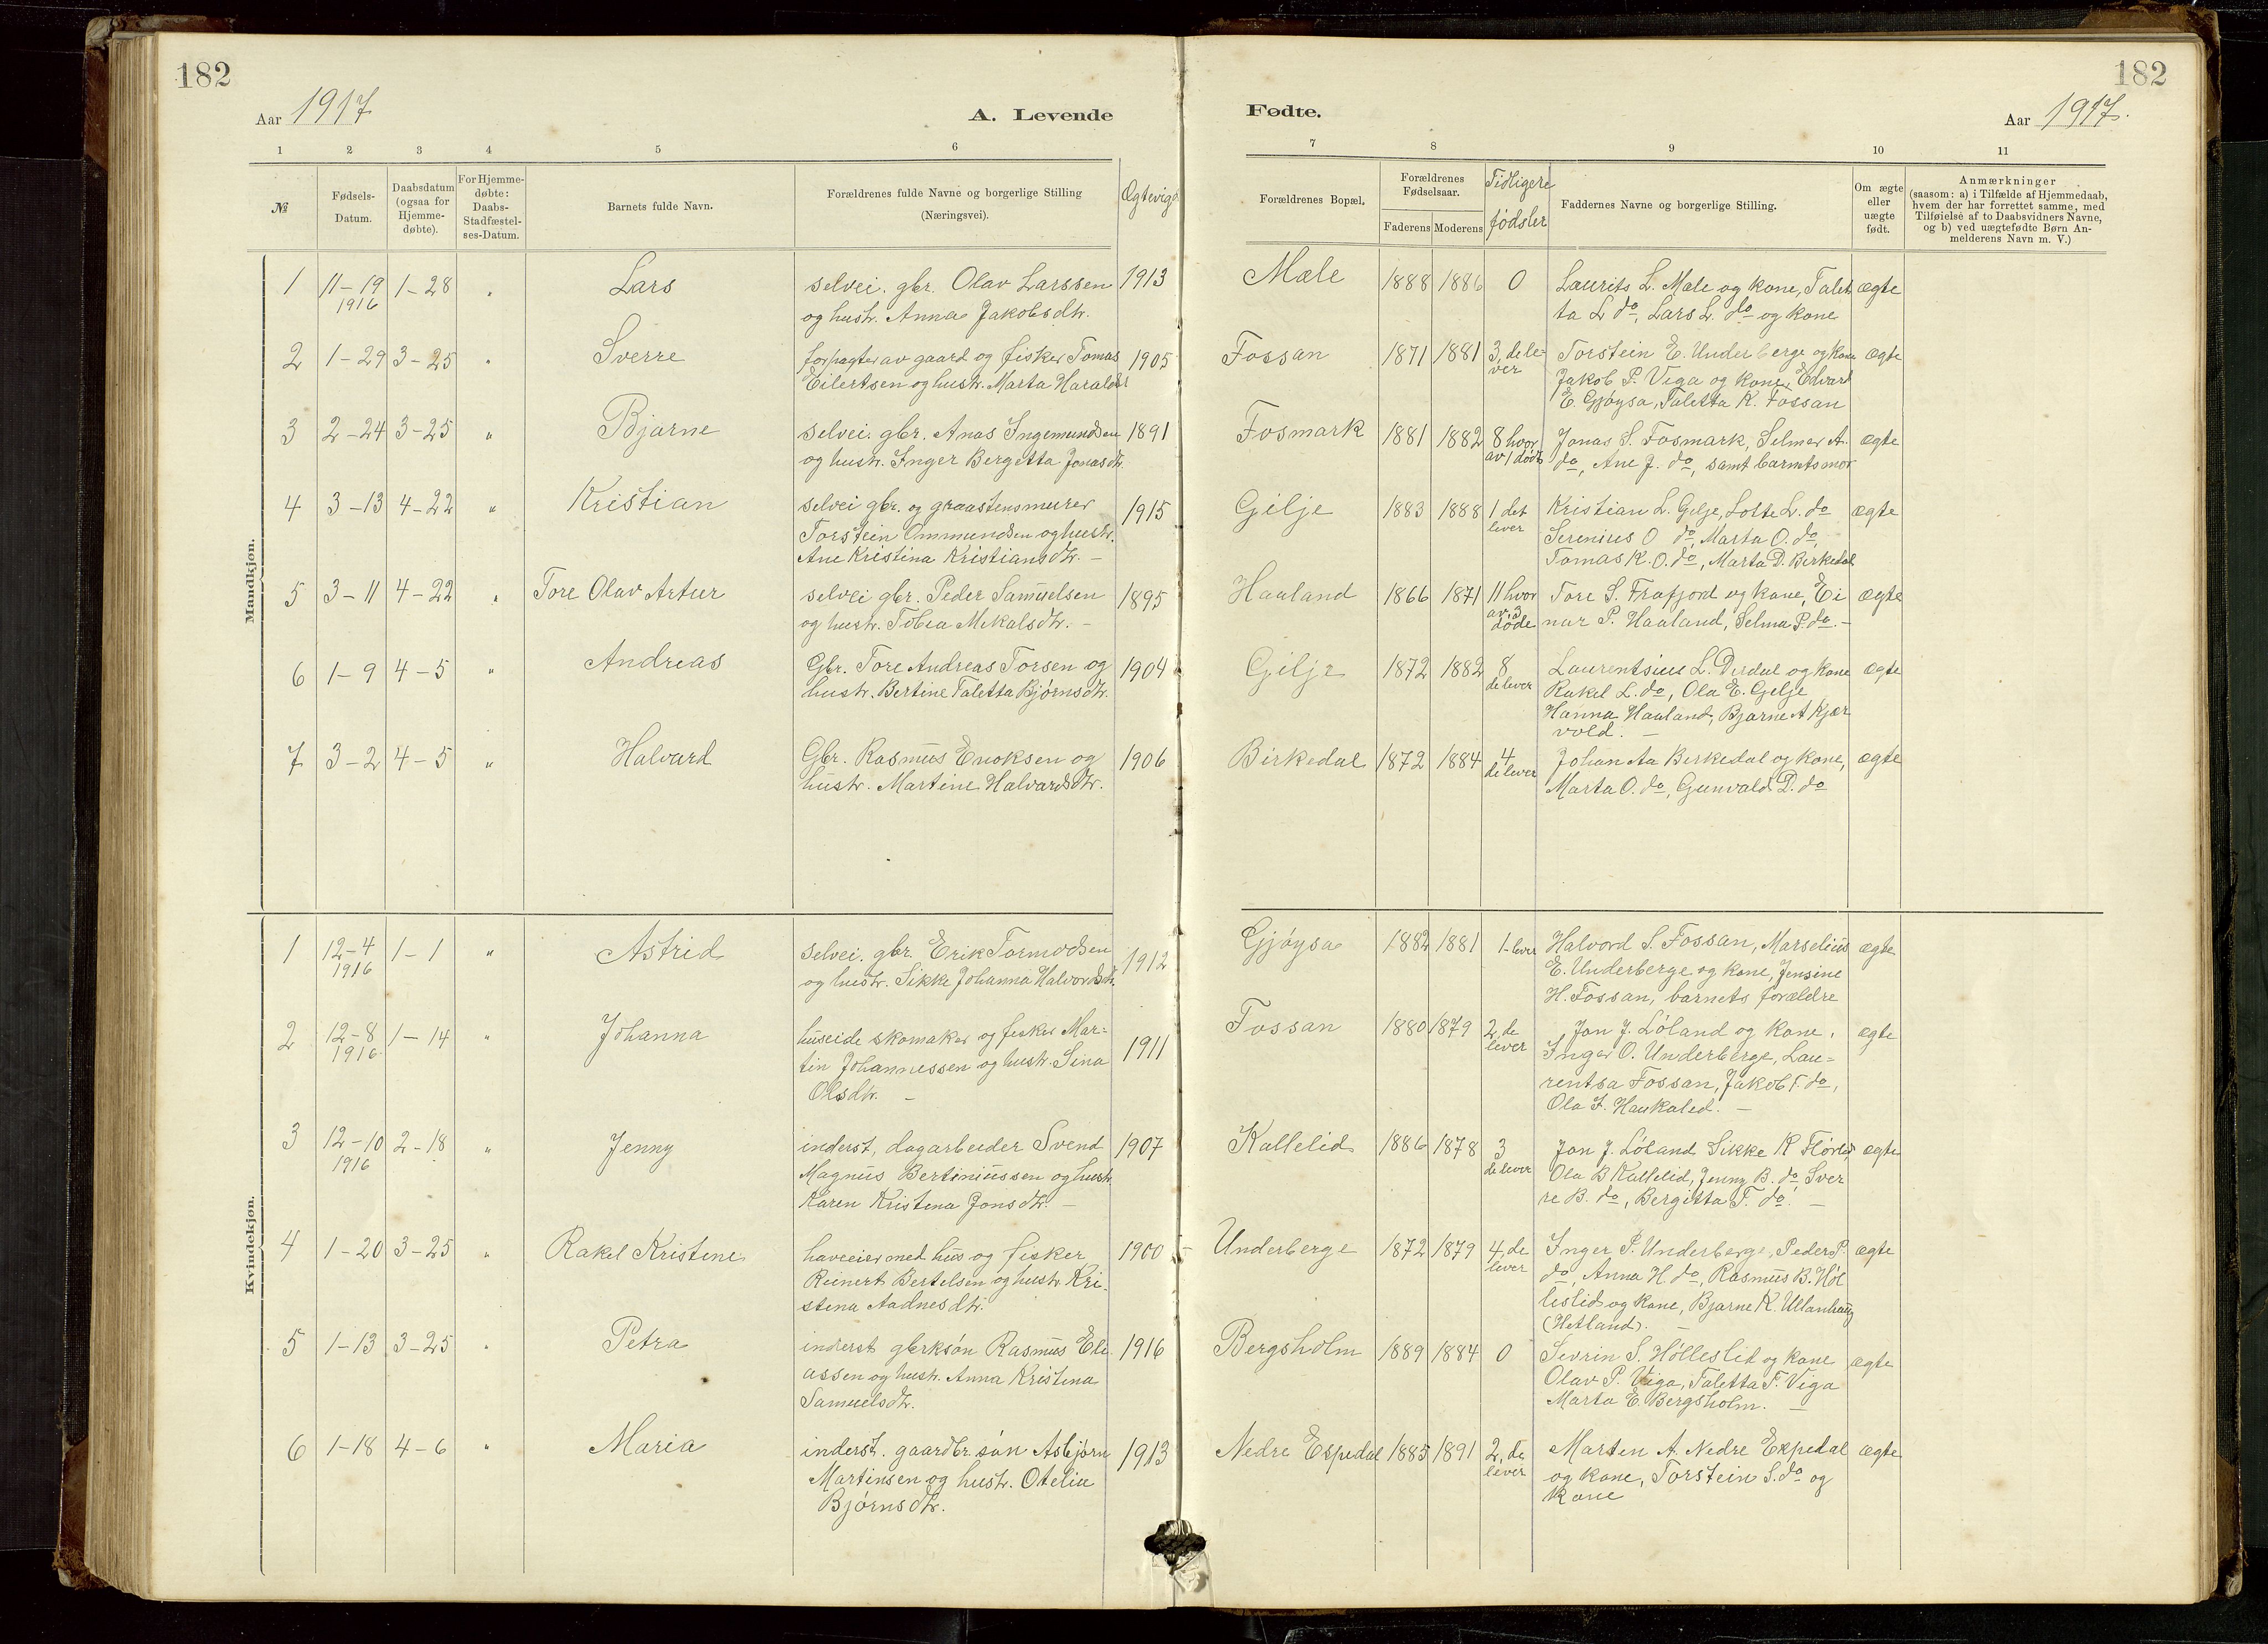 182
182
Aar 1917
A. Levende
Fødte.
Aar 1917.
1 2 3 4 5 6 7 8 9 10 11
№
Fødsels-
Datum.
Daabsdatum
(ogsaa for
Hjemme-
døbte).
For Hjemme-
døbte:
Daabs-
Stadfæstel-
ses-Datum.
Barnets fulde Navn.
Forældrenes fulde Navne og borgerlige Stilling
(Næringsvei).
Ægtevigd
Forældrenes Bopæl.
Forældrenes
Fødselsaar.
Faderens Moderens
Tidligere
fødsler
Faddernes Navne og borgerlige Stilling.
Om ægte
eller
uægte
født.
Anmærkninger
(saasom: a) i Tilfælde af Hjemmedaab,
hvem der har forrettet samme, med
Tilføielse af to Daabsvidners Navne,
og b) ved uægtefødte Børn An-
melderens Navn m. V.)
Mandkjøn.
1 11-19 1-28 " Lars selvei. gbr. Olav Larssen 1913 Mæle 1888 1886 0 Laurits L. Mæle og kone, Talet ægte
1916 og hustr. Anna Jakobsdtr. ta L do, Lars L. do og kone
2 1-29 3-25 " Sverre forpagter av gaard og fisker Tomas 1905 Fossan 1871 1881 3, de le- Torstein E. Underberge og kone ægte
Eilertsen og hustr. Marta Haraldsd ver Jakob P. Viga og kone, Edvard
E. Gjøysa, Taletta K. Fossan
3 2-24 3-25 " Bjarne selvei. gbr. Anas Ingemundsen 1891 Fosmark 1881 1882 8 hvor Jonas S. Fosmark, Selmer A. ægte
og hustr. Inger Bergetta Jonasdtr. av 1 død do, Ane J. do, samt barnets mor
4 3-13 4-22 " Kristian selvei gbr. og graastensmurer 1915 Gilje 1883 1888 1 det Kristian L. Gilje, Lotte L. do ægte
Torstein Ommundsen og hustr. lever Serenius O do, Marta O. do,
Ane Kristina Kristiansdtr. - Tomas K. O. do, Marta D. Birkedal
5 3-11 4-22 " Tore Olav Artur selvei gbr. Peder Samuelsen 1895 Haaland 1866 1871 11 hvor Tore S. Frafjord og kone, Ei ægte
og hustr. Tobea Mikalsdtr. - av 3 døde nar P. Haaland, Selma P. do. -
6 1-9 4-5 " Andreas Gbr. Tore Andreas Torsen og 1904 Gilje 1872 1882 8 Laurentsius L. Dirdal og kone ægte
hustr. Bertine Taletta Bjørnsdtr. de lever Rakel L. do, Ola E. Gilje
Hanna Haaland, Bjarne A Kjær
vold. -
7 3-2 4-5 " Halvard Gbr. Rasmus Enoksen og 1906 Birkedal 1872 1884 4 Johan Aa Birkedal og kone, ægte
hustr. Martine Halvardsdtr. de lever Marta O. do, Gunvald D. do
Kvindekjøn.
1 12-4 1-1 " Astrid selvei. gbr. Erik Tormodsen 1912 Gjøysa 1882 1881 1 lever Halvord S. Fossan, Marselius ægte
1916 og hustr. Sikke Johanna Halvordsdtr. E. Underberge og kone, Jensine
H. Fossan, barnets forældre
2 12-8 1-14 " Johanna huseide skomaker og fisker Mar= 1911 Fossan 1880 1879 2, de Jon J. Løland og kone, ægte
1916 tin Johannessen og hustr. Sina lever Inger O. Underberge, Lau=
Olsdtr. - rentsa Fossan, Jakob T. do,
Ola F. Haukalid. -
3 12-10 2-18 " Jenny inderst, dagarbeider Svend 1907 Kallelid 1886 1878 3 Jon J. Løland Sikke K Flørli, ægte
1916 Magnus Bertiniussen og hustr. de lever Ola B Kallelid, Jenny B. do, Sver
Karen Kristina Jonsdtr. - re B. do, Bergitta T. do. -
4 1-20 3-25 " Rakel Kristine haveeier med hus og fisker 1900 Underberge 1872 1879 4, de Inger P. Underberge, Peder P. ægte
Reinert Bertelsen og hustr. Kri- lever do, Anna H. do, Rasmus B. Høl
stina Aadnesdtr. leslid og kone, Bjarne K. Ullanhaug
(Hetland). -
5 1-13 3-25 " Petra inderst gbrksøn Rasmus Eli 1916 Bergsholm 1889 1884 0 Sevrin S. Hølleslid og kone ægte
assen og hustr. Anna Kristina Olav P. Viga, Taletta T. Viga
Samuelsdtr. Marta E. Bergsholm. -
6 1-18 4-6 " Maria inderst. gaardbr. søn Asbjørn 1913 Nedre Espedal 1885 1891 2, de Marten A. Nedre Espedal ægte
Martinsen og hustr. Otelie lever og kone, Torstein S. do og
Bjørnsdtr. kone